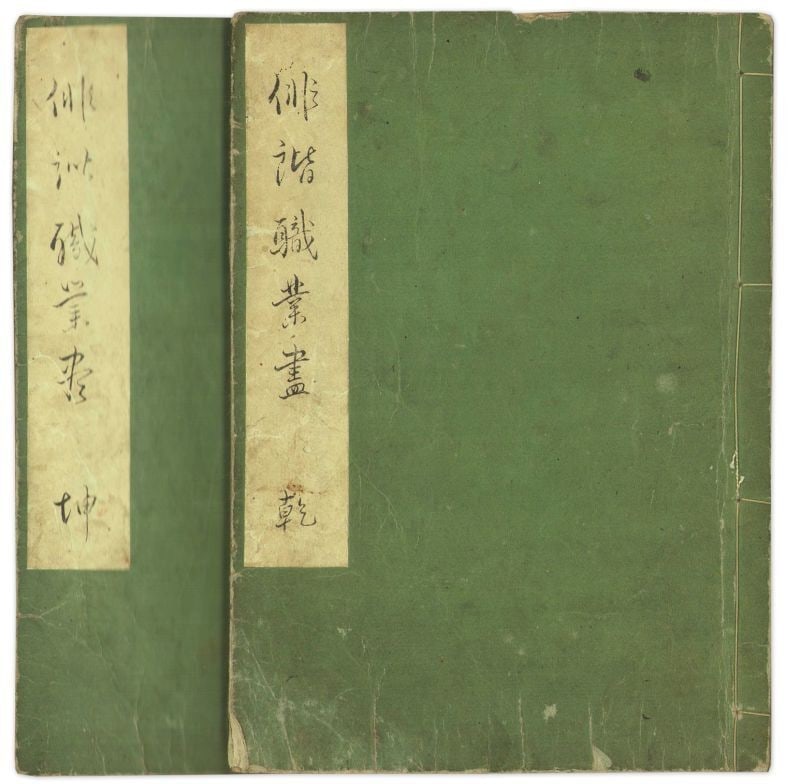 俳諧職業盡 乾
俳諧職業尽 坤